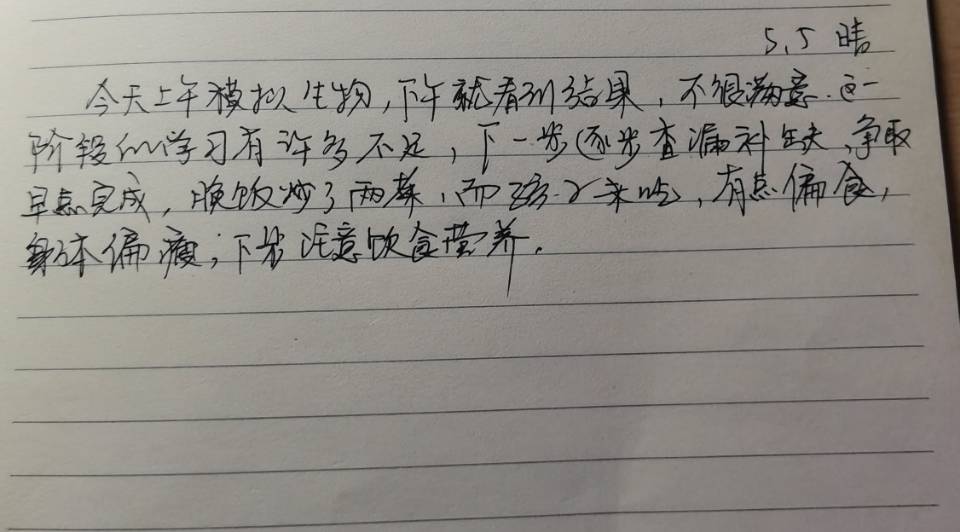 5.5 晴
今天上午模拟生物,下午就看到结果,不很满意.这一
阶段的学习有许多不足,下一步逐步查漏补缺,争取
早点完成,晚饭炒了两菜,而孩子未吃,有点偏食,
身体偏瘦;下步注意饮食营养.